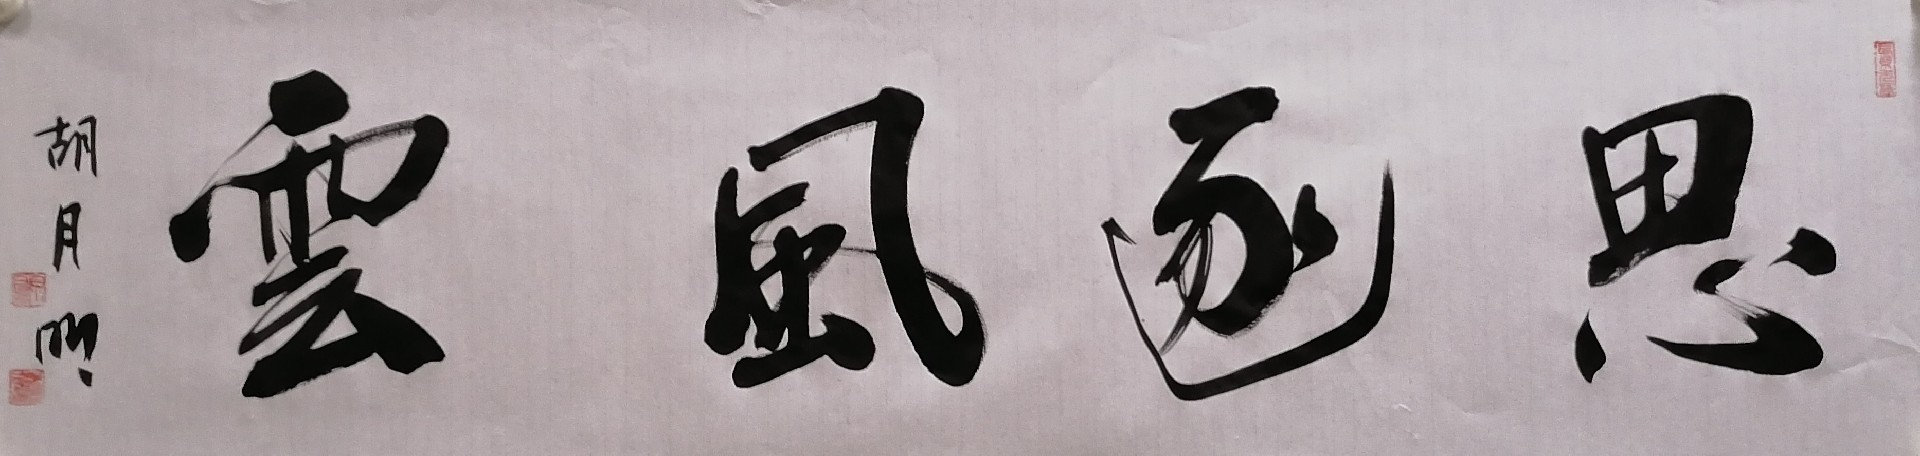 思逐風雲
胡月明